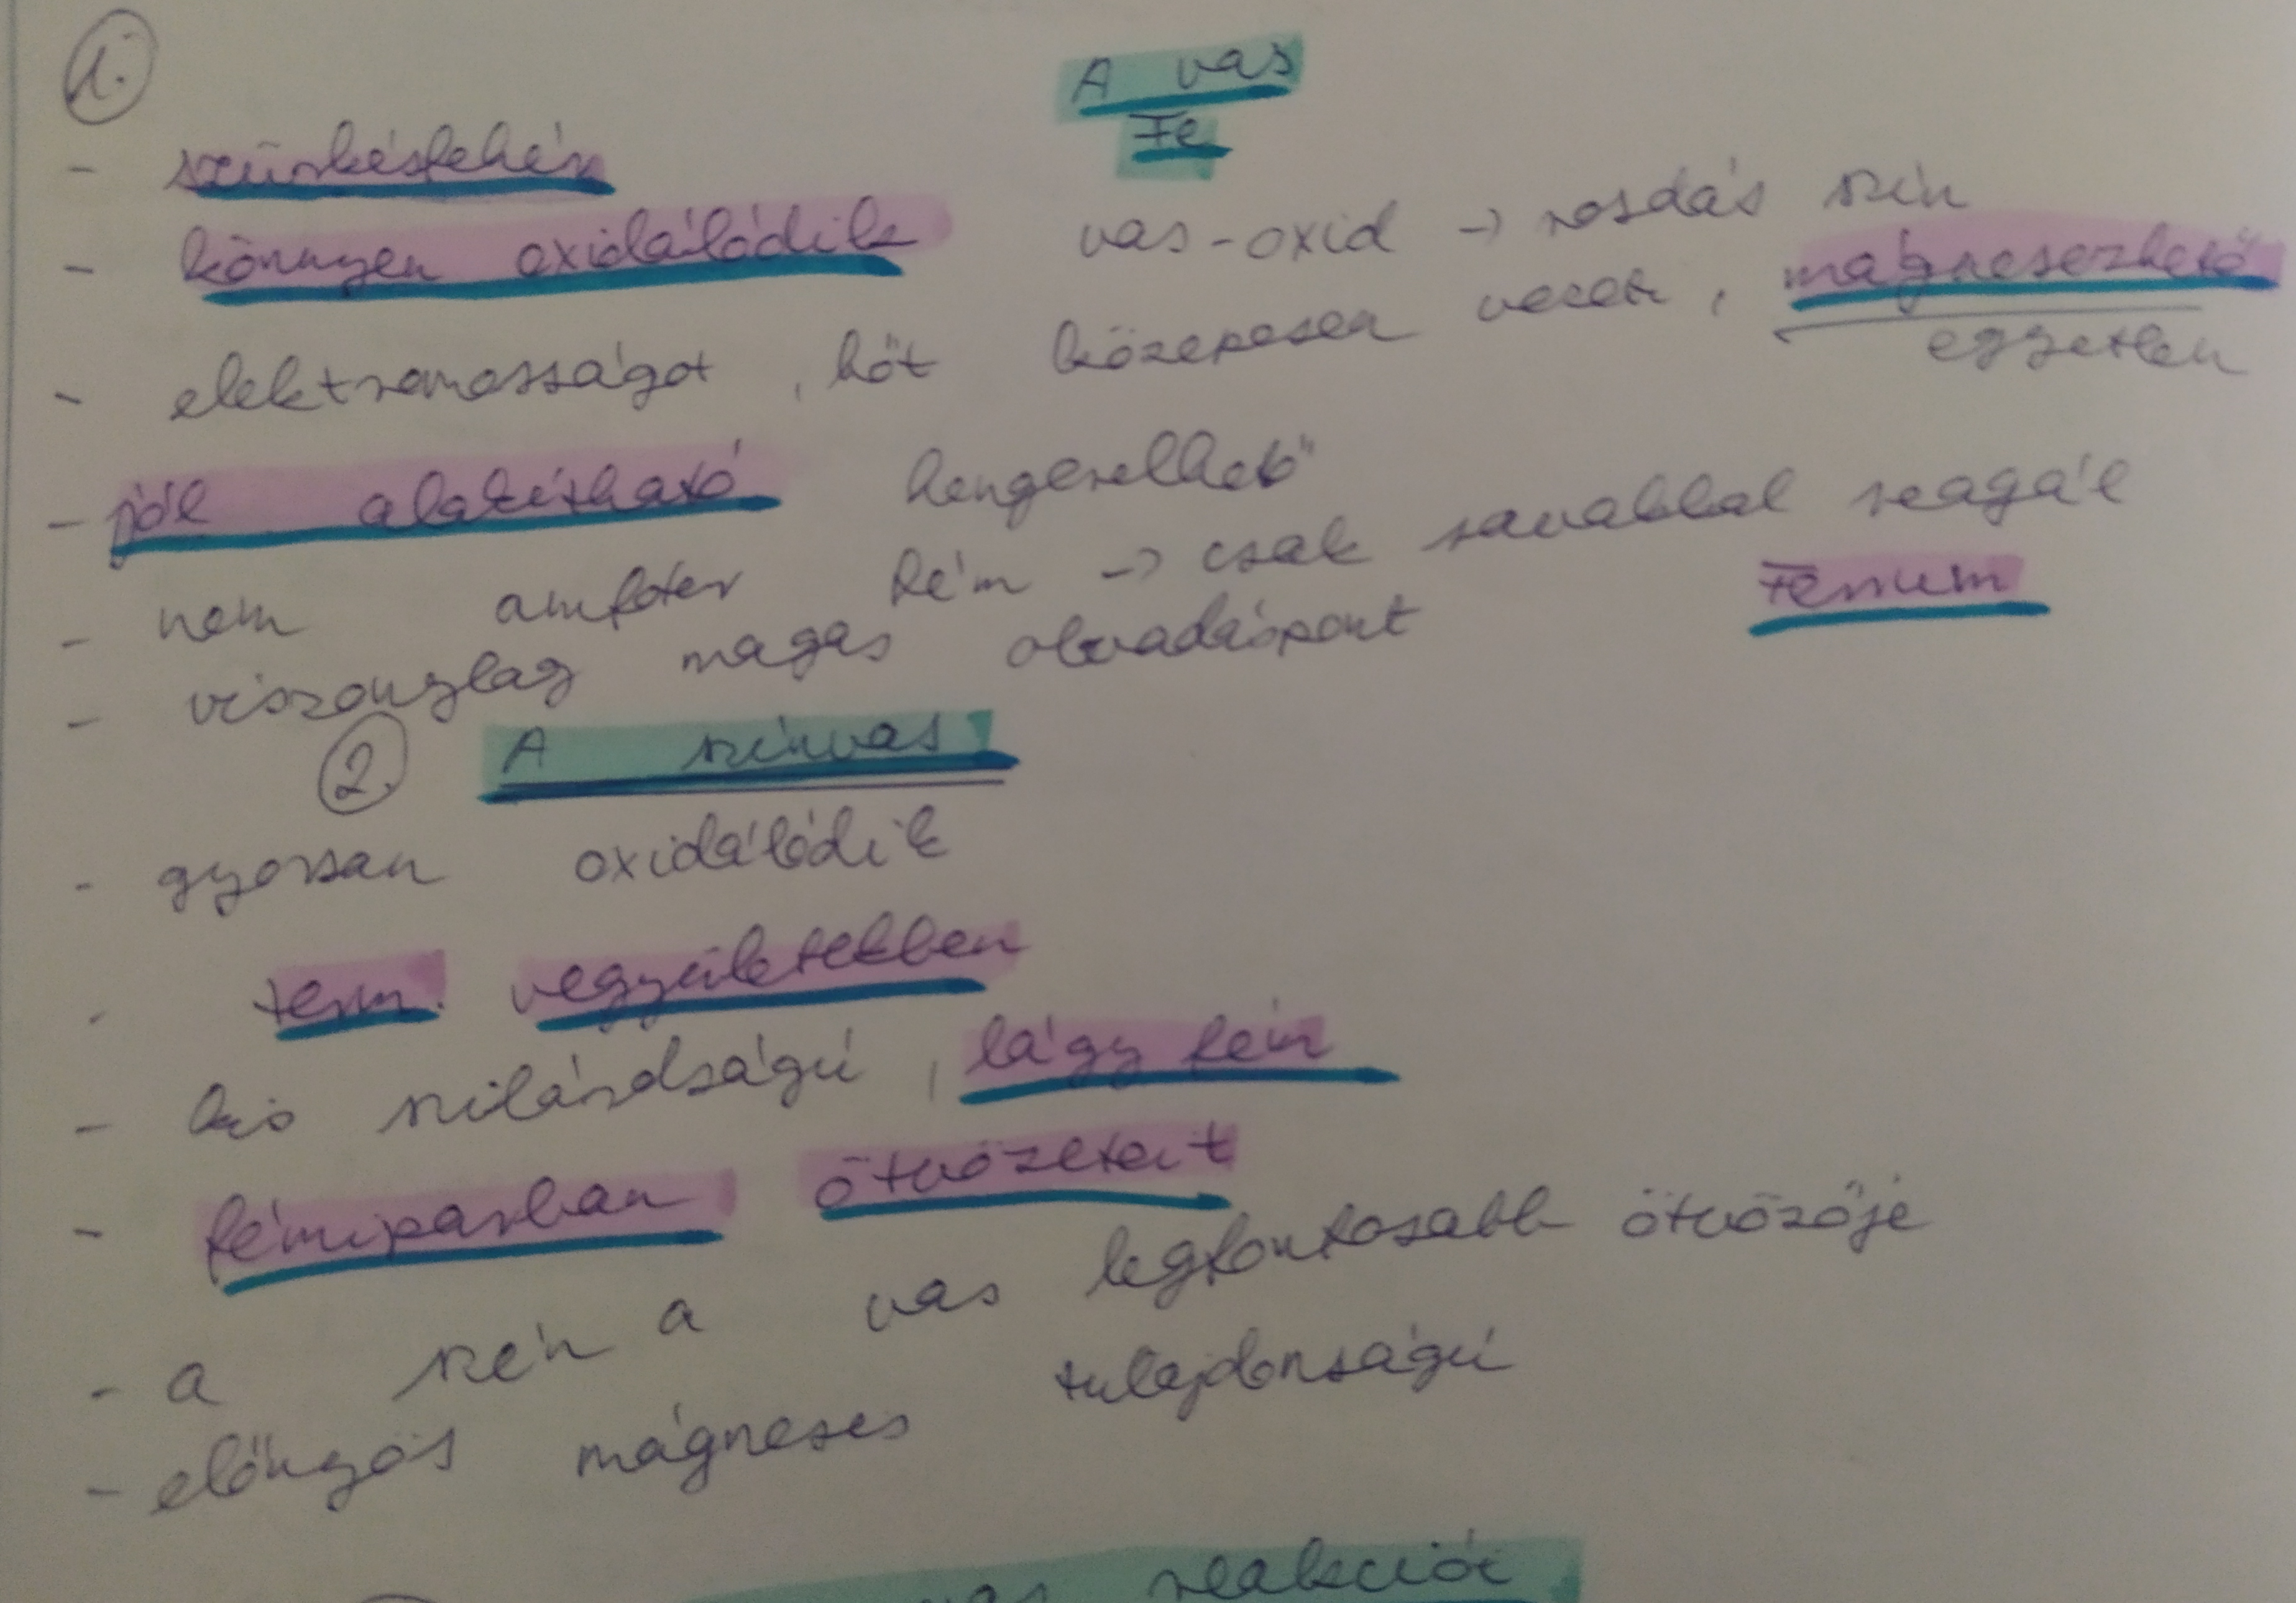 1.
A vas
Fe
- szürkésfehér
- könnyen oxidálódik vas-oxid → rozsdás szín
- elektromosságot, hőt közepesen vezet, mágnesezhető
egyetlen
- jól alakítható hengerelhető
- nem amfoter fém → csak savakkal reagál
Ferrum
- viszonylag magas olvadáspont
2. A színvas
- gyorsan oxidálódik
- term. vegyületekben
- kis szilárdságú, lágy fém
- fémiparban ötvözeteit
- a szén a vas legfontosabb ötvözője
- előnyös mágneses tulajdonságú
vas reakciói